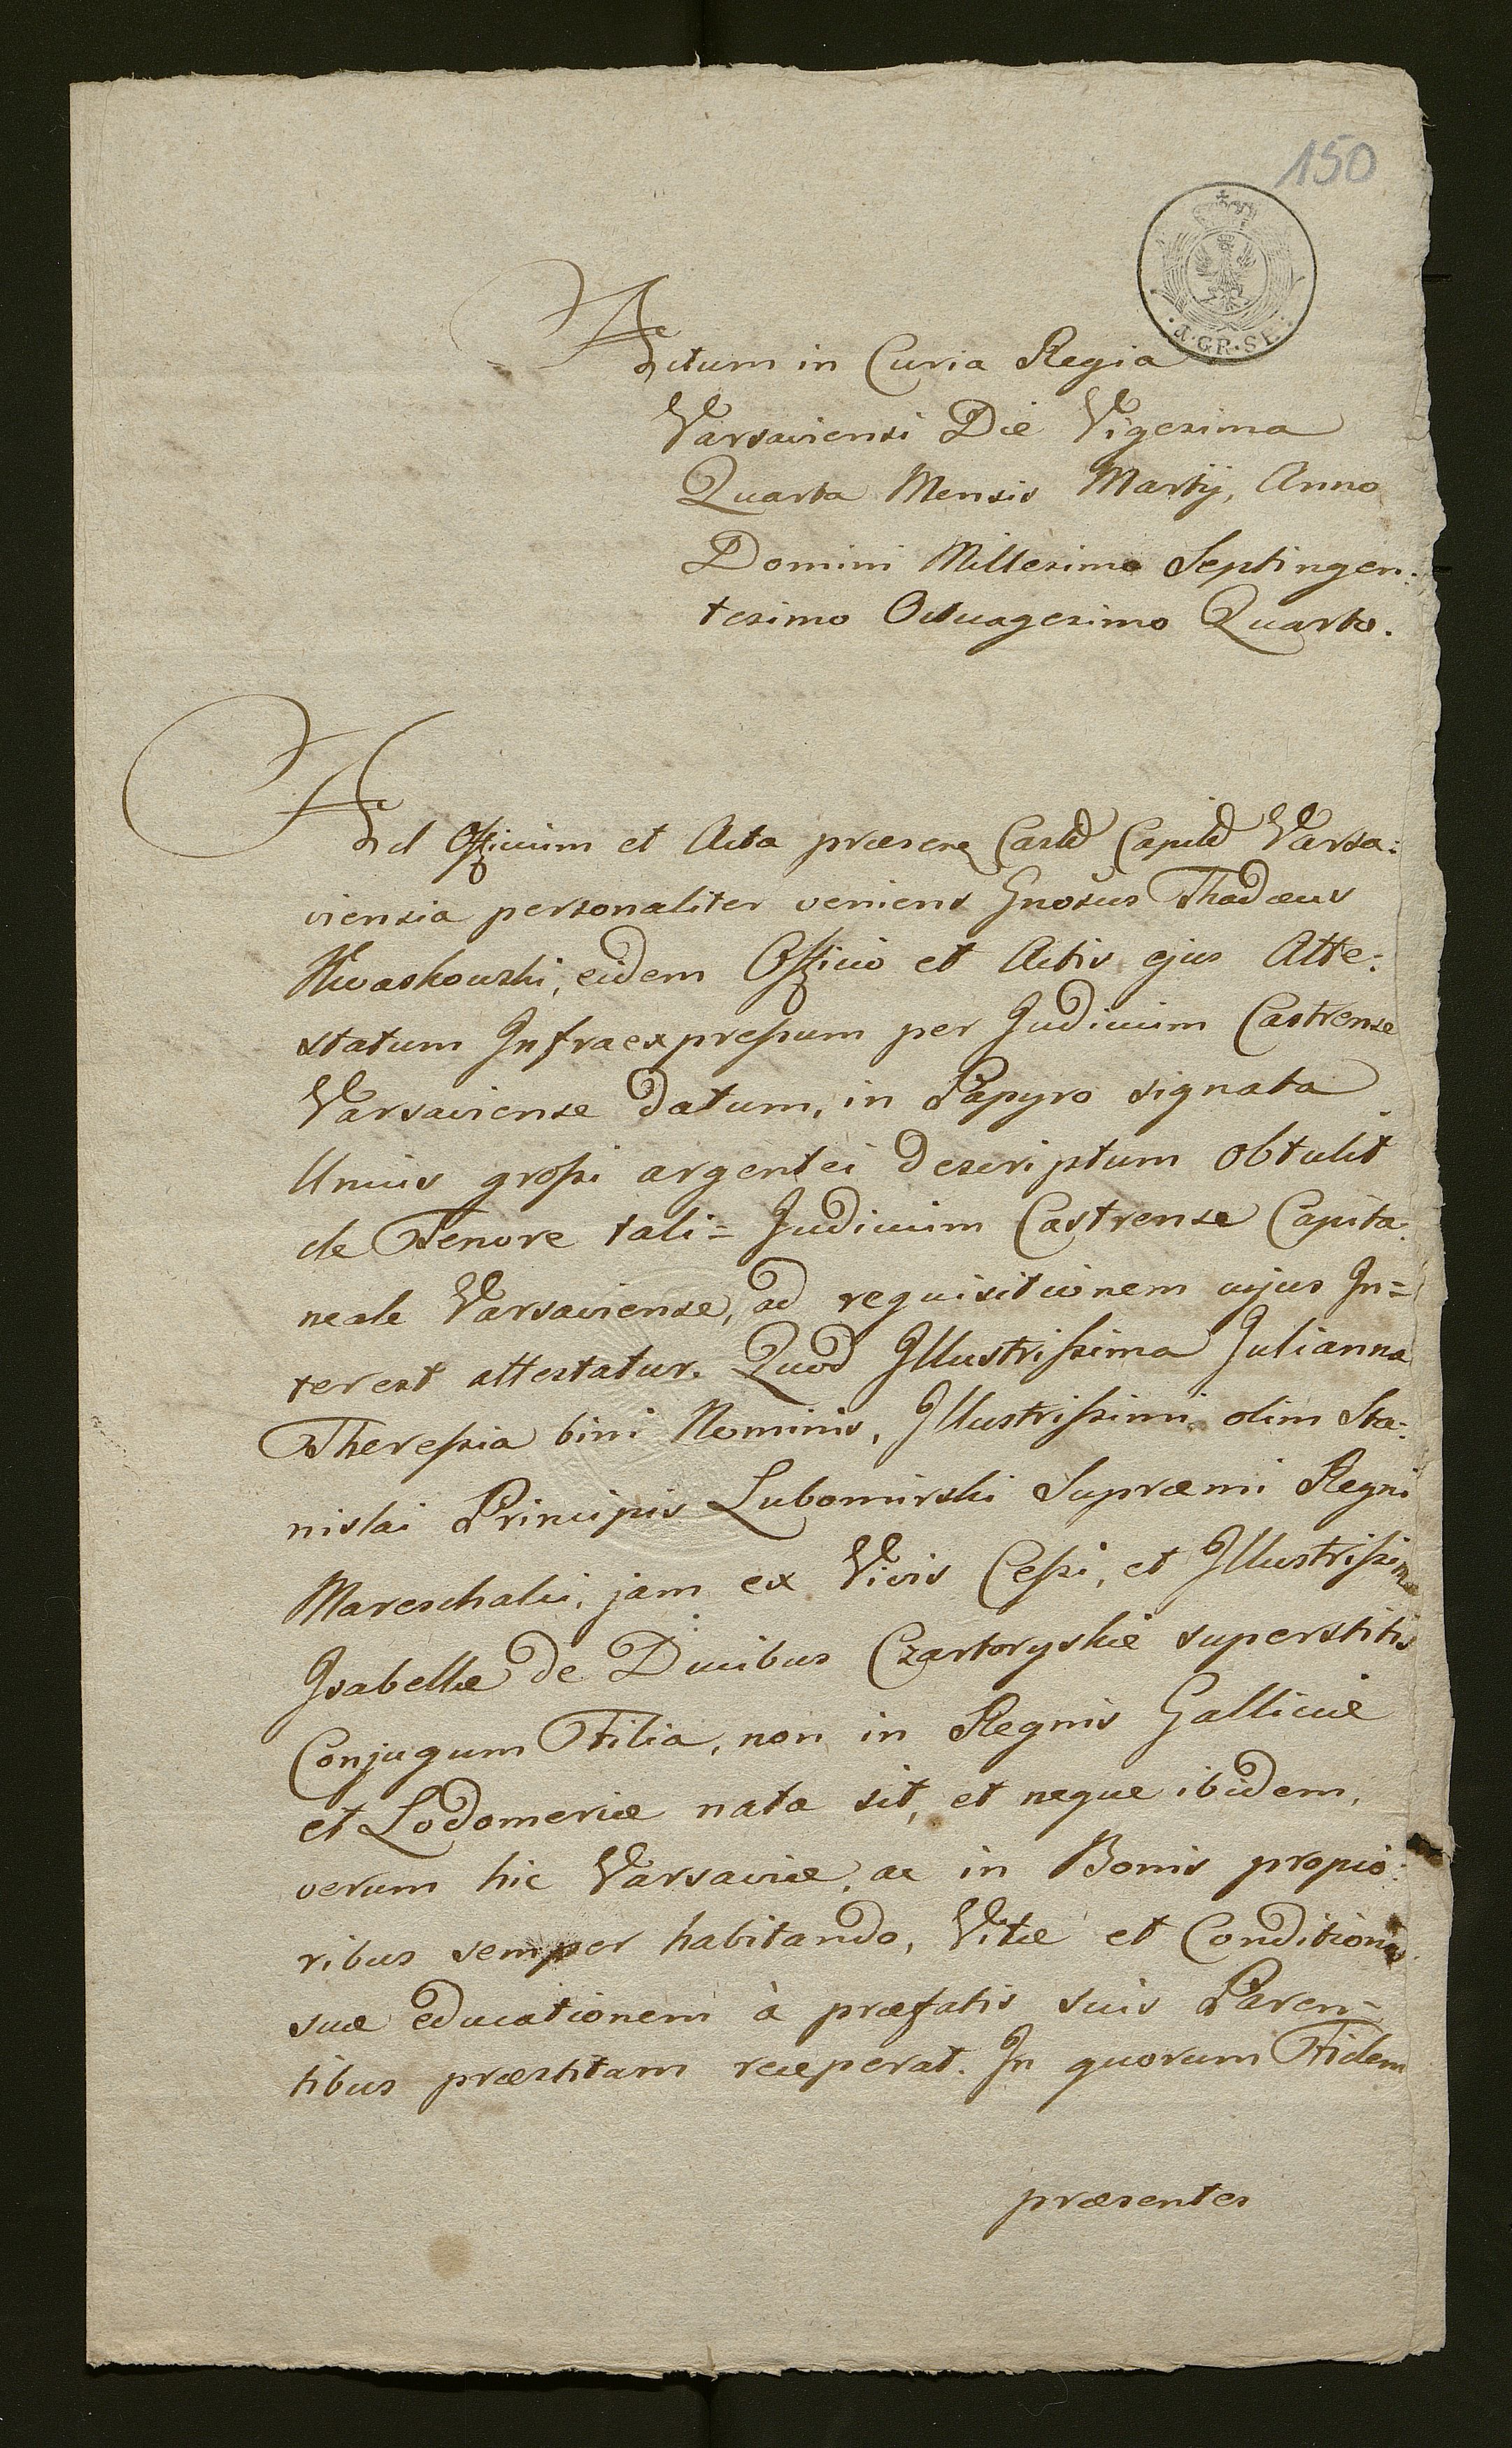 150
a. GR. SL.
Actum in Curia Regia
Varsaviensi Die Vigesima
Quarta Mensis Martij, Anno
Domini Millesimo Septingen:
tesimo Octuagesimo Quarto.
Ad Officium et Acta præsens Castr Capit Varsa:
viensia personaliter veniens Gnosus Thadæus
Kwaskowski, eidem Officio et Actis ejus Atte:
statum Infraexpressum per Judicium Castrense
Varsaviense datum, in Papyro signata
Unius grossi argentei descriptum obtulit
de Tenore tali = Judicium Castrense Capita:
neale Varsaviense, ad requisitionem cujus In=
terest attestatur. Quod Illustrissima Julianna
Theressia bini Nominis, Illustrissimi olim Sta:
nislai Principis Lubomirski Supræmi Regni
Mareschalci, jam ex Vivis Cessi, et Illustrissimæ
Isabellæ de Ducibus Czartoryskie superstitis
Conjugum Filia, non in Regnis Galliciæ
et Lodomeriæ nata sit, et neque ibidem,
verum hic Varsaviæ, ac in Bonis propio:
ribus semper habitando, Vitæ et Conditionis
suæ educationem à præfatis suis Paren=
tibus præstitam receperat. In quorum Fidem
præsentes